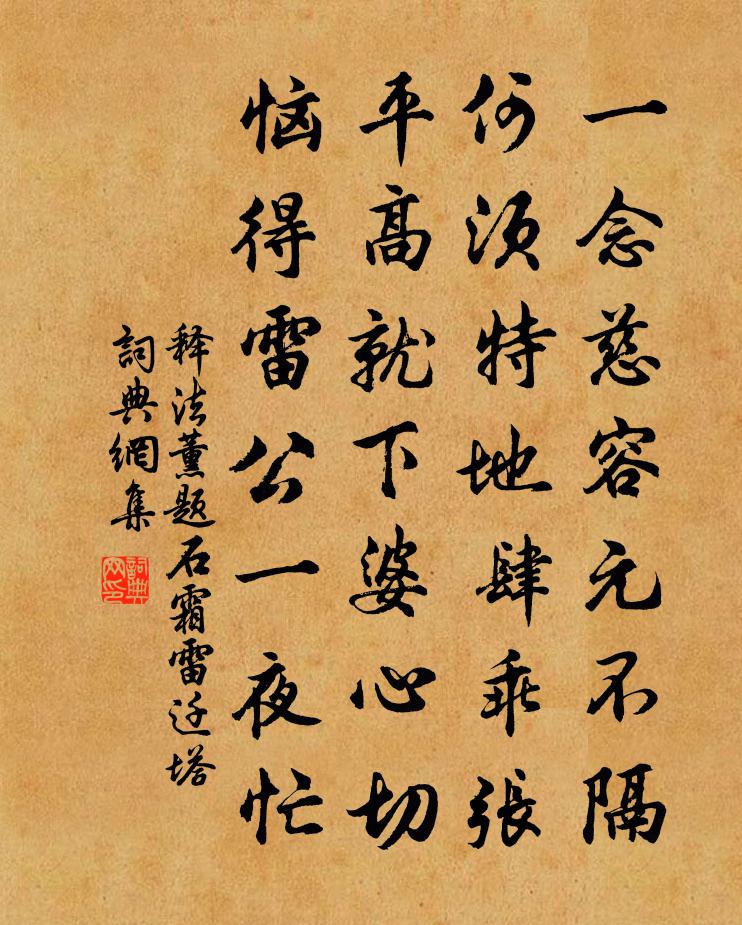 一念慈容元不隔
何须特地肆乖張
平高就下婆心切
恼得雷公一夜忙
释法薰题石霜雷迁塔
詞典網集
詞典网印